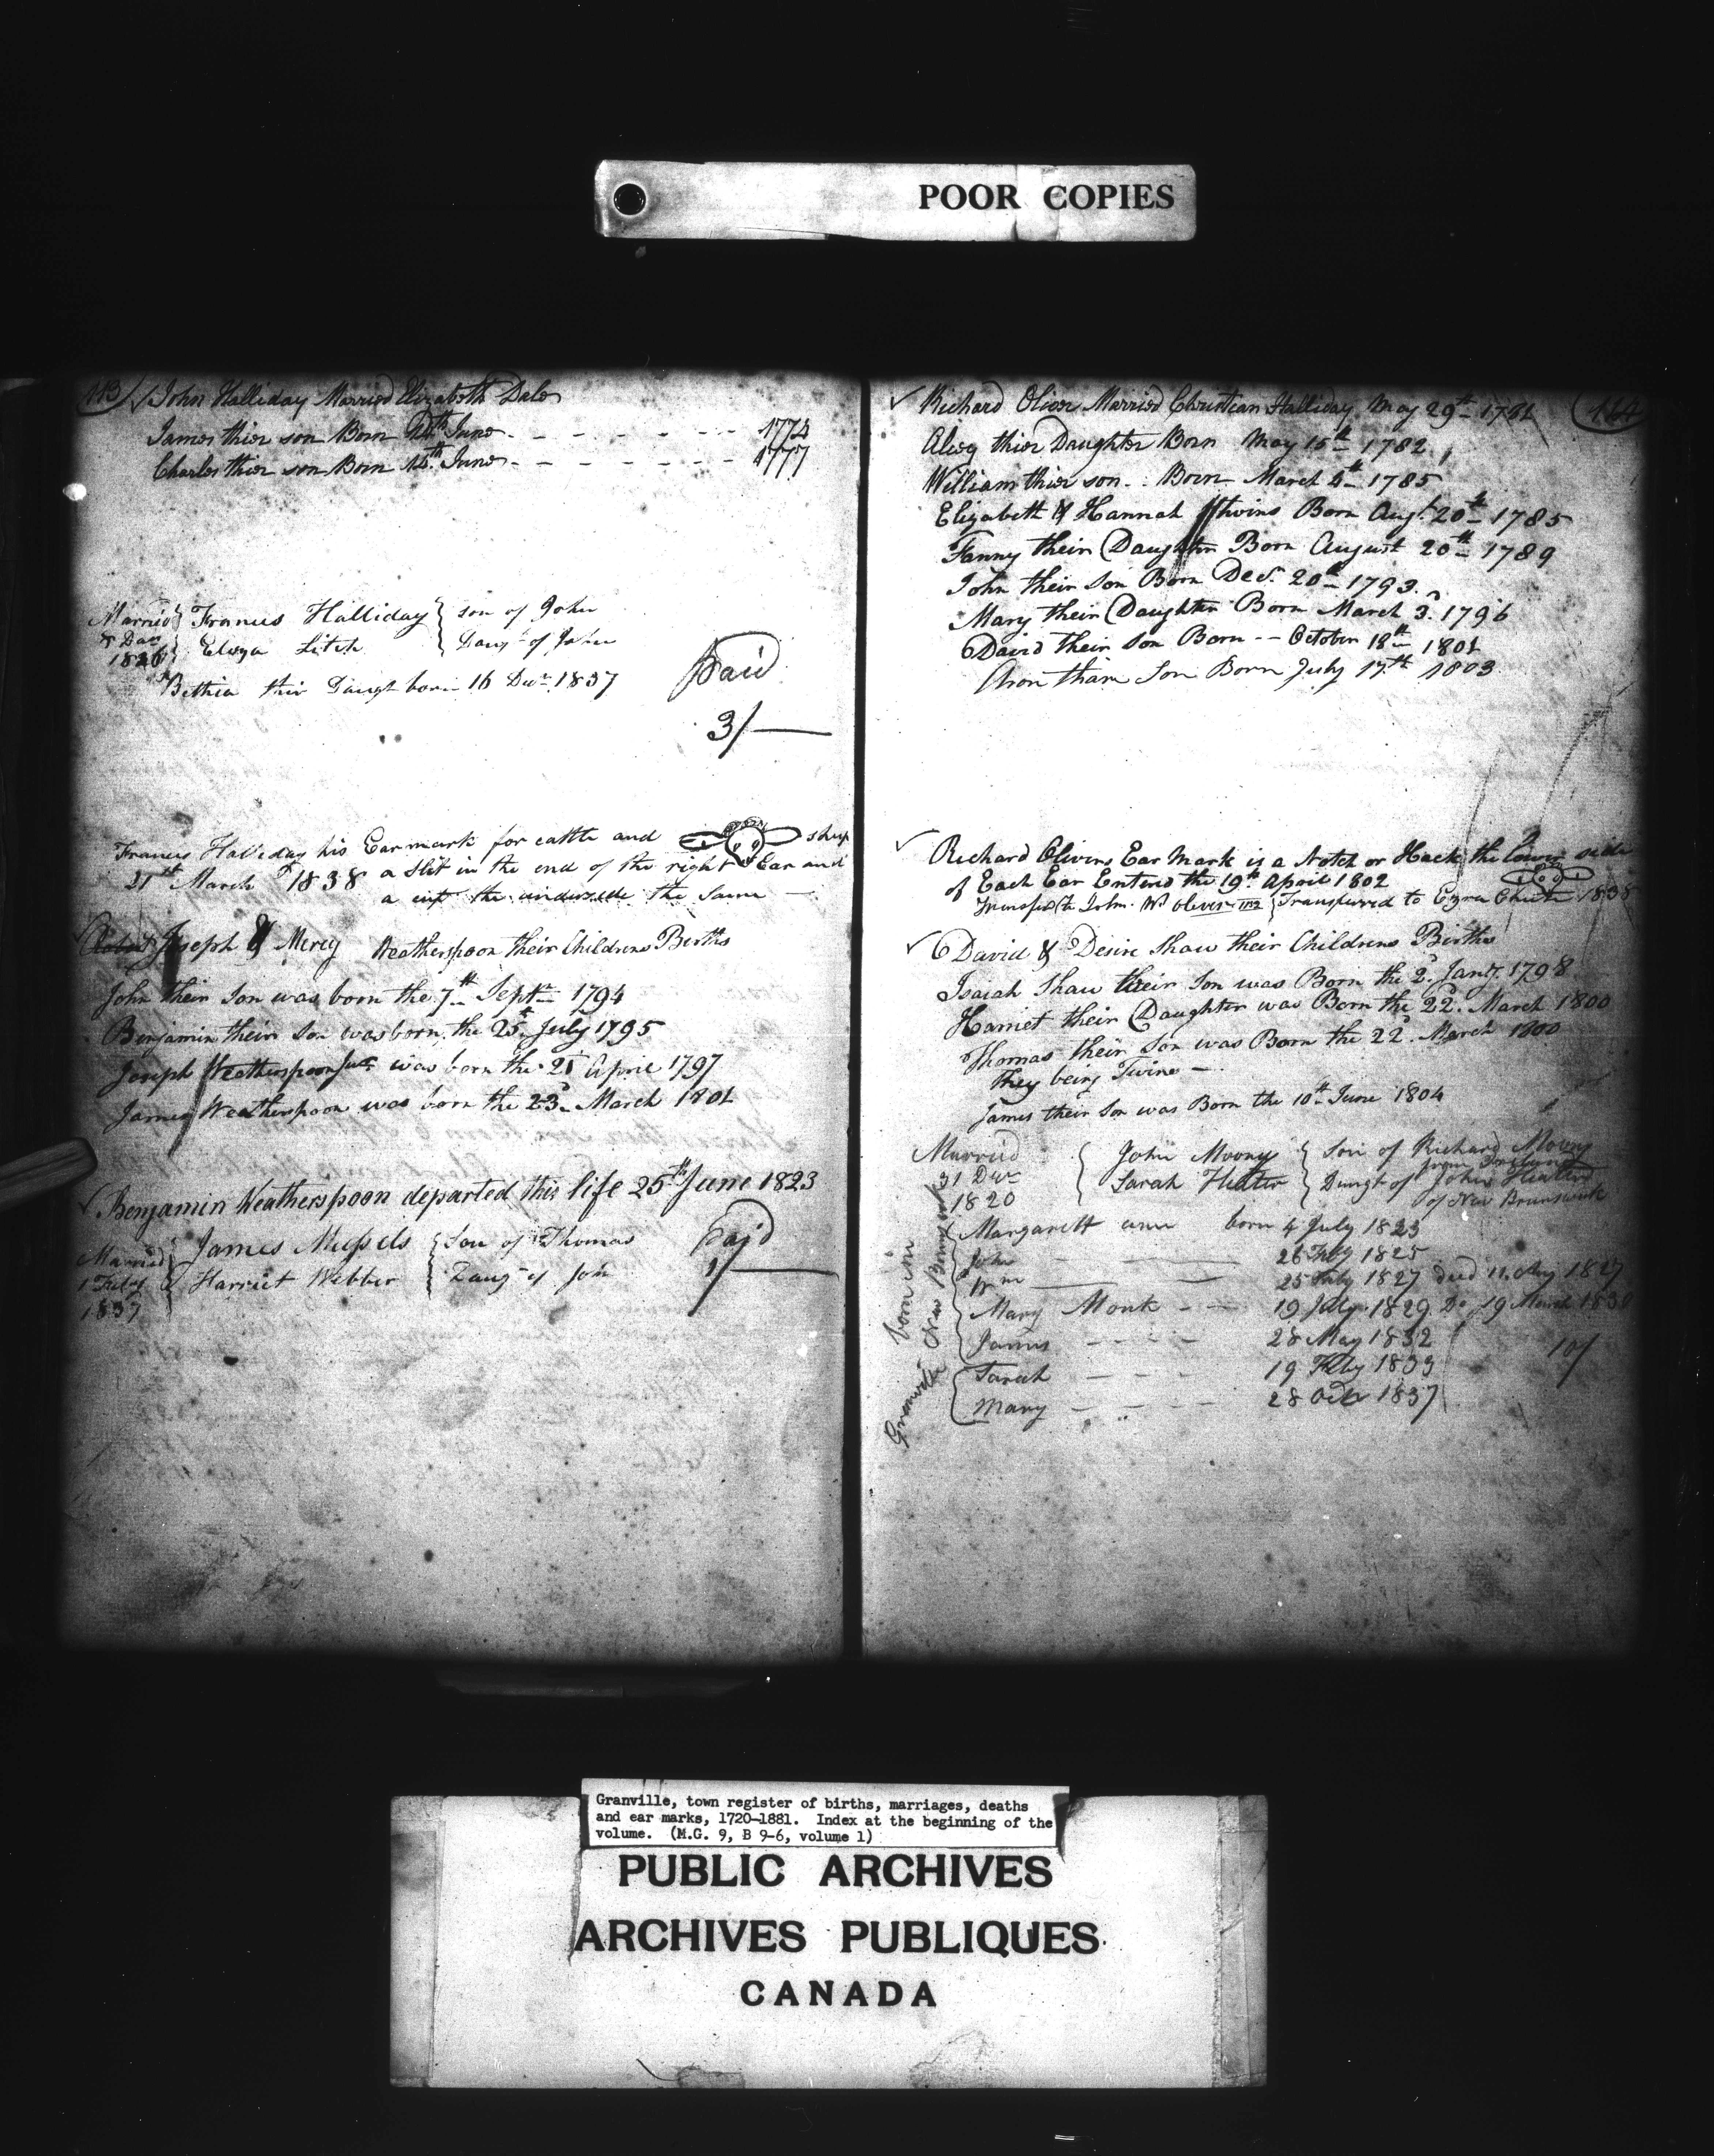 POOR COPIES
113 John Halliday Married Elizabeth Dale
James thier son Born 24th June - - - - - - - 1774
Charles thier son Born 14th June - - - - - - - 1777
Married Francis Halliday son of John
Litch Daugt of John
Bethia thir Daught born 16 Decr 1837
Paid
3/
Francis Halliday his Ear mark for cattle and sheep
21st March 1838 a slit in the end of the right Ear and
a cut the underside the same
Joseph & Mercy Weatherspoon their Childrens Births
John their Son was born the 7th Septr 1794
Benjamin their Son was born the 25th July 1795
Joseph Weatherspoon Junr was born the 21 April 1797
James Weatherspoon was born the 23d March 1801
Benjamin Weatherspoon departed this life 25th June 1823
Married James Mussels Son of Thomas
Harriet Webber Daugt of John
1837
Paid
1/
114
Richard Oliver Married Christian Halliday May 29th 1781
thier Daughter Born May 15th 1782
William thier son Born March 4th 1785
Elizabeth & Hannah twins Born Augt 20th 1785
Fanny their Daughter Born August 20th 1789
John their Son Born Decr 20th 1793
Mary their Daughter Born March 3d 1796
David their Son Born -- October 18th 1801
Aron thare Son Born July 17th 1803
Richard Olivers Ear Mark is a Notch or Hack the lower side
of Each Ear Enterd the 19th April 1802
Transferred to Ezra Chute 1838
David & Desire Shaw their Childrens Births
Isaiah Shaw their Son was Born the 2d Jany 1798
Harriet their Daughter was Born the 22d March 1800
Thomas their Son was Born the 22d March 1800
They being Twins
James their Son was Born the 10th June 1804
Married John Moony Son of Richard Moony
from
31 Decr Sarah Daugt of John
1820 of New Brunswick
born in New Brunswick
Margarett ann born 4 July 1823
John - 1825
Wm - 25 July 1827 died 11 Aug 1827
Mary Monk - - 19 July 1829 Do 19 March 1830
James - - - - 28 May 1832
10/
Granville
Sarah - - - - 19 Feby 1833
Mary - - - - 28 Octr 1837
Granville, town register of births, marriages, deaths
and ear marks, 1720-1881. Index at the beginning of the
volume. (M.G. 9, B 9-6, volume 1)
PUBLIC ARCHIVES
ARCHIVES PUBLIQUES
CANADA